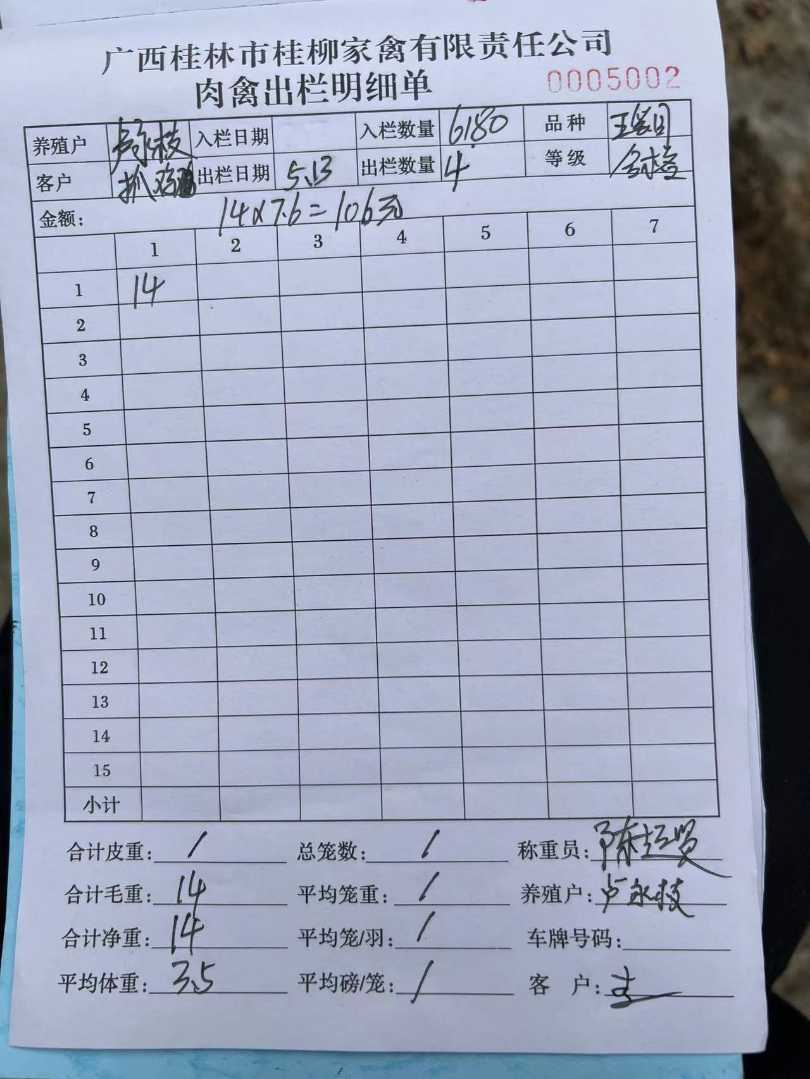 广西桂林市桂柳家禽有限责任公司
肉禽出栏明细单 0005002
养殖户 卢永枝 入栏日期 入栏数量 6180 品种
客户 出栏日期 5.13 出栏数量 4 等级 合格
金额: 14×7.6=106元
1 2 3 4 5 6 7
1 14
2
3
4
5
6
7
8
9
10
11
12
13
14
15
小计
合计皮重: / 总笼数: / 称重员:
合计毛重: 14 平均笼重: / 养殖户: 卢永枝
合计净重: 14 平均笼/羽: / 车牌号码:
平均体重: 3.5 平均磅/笼: / 客 户: